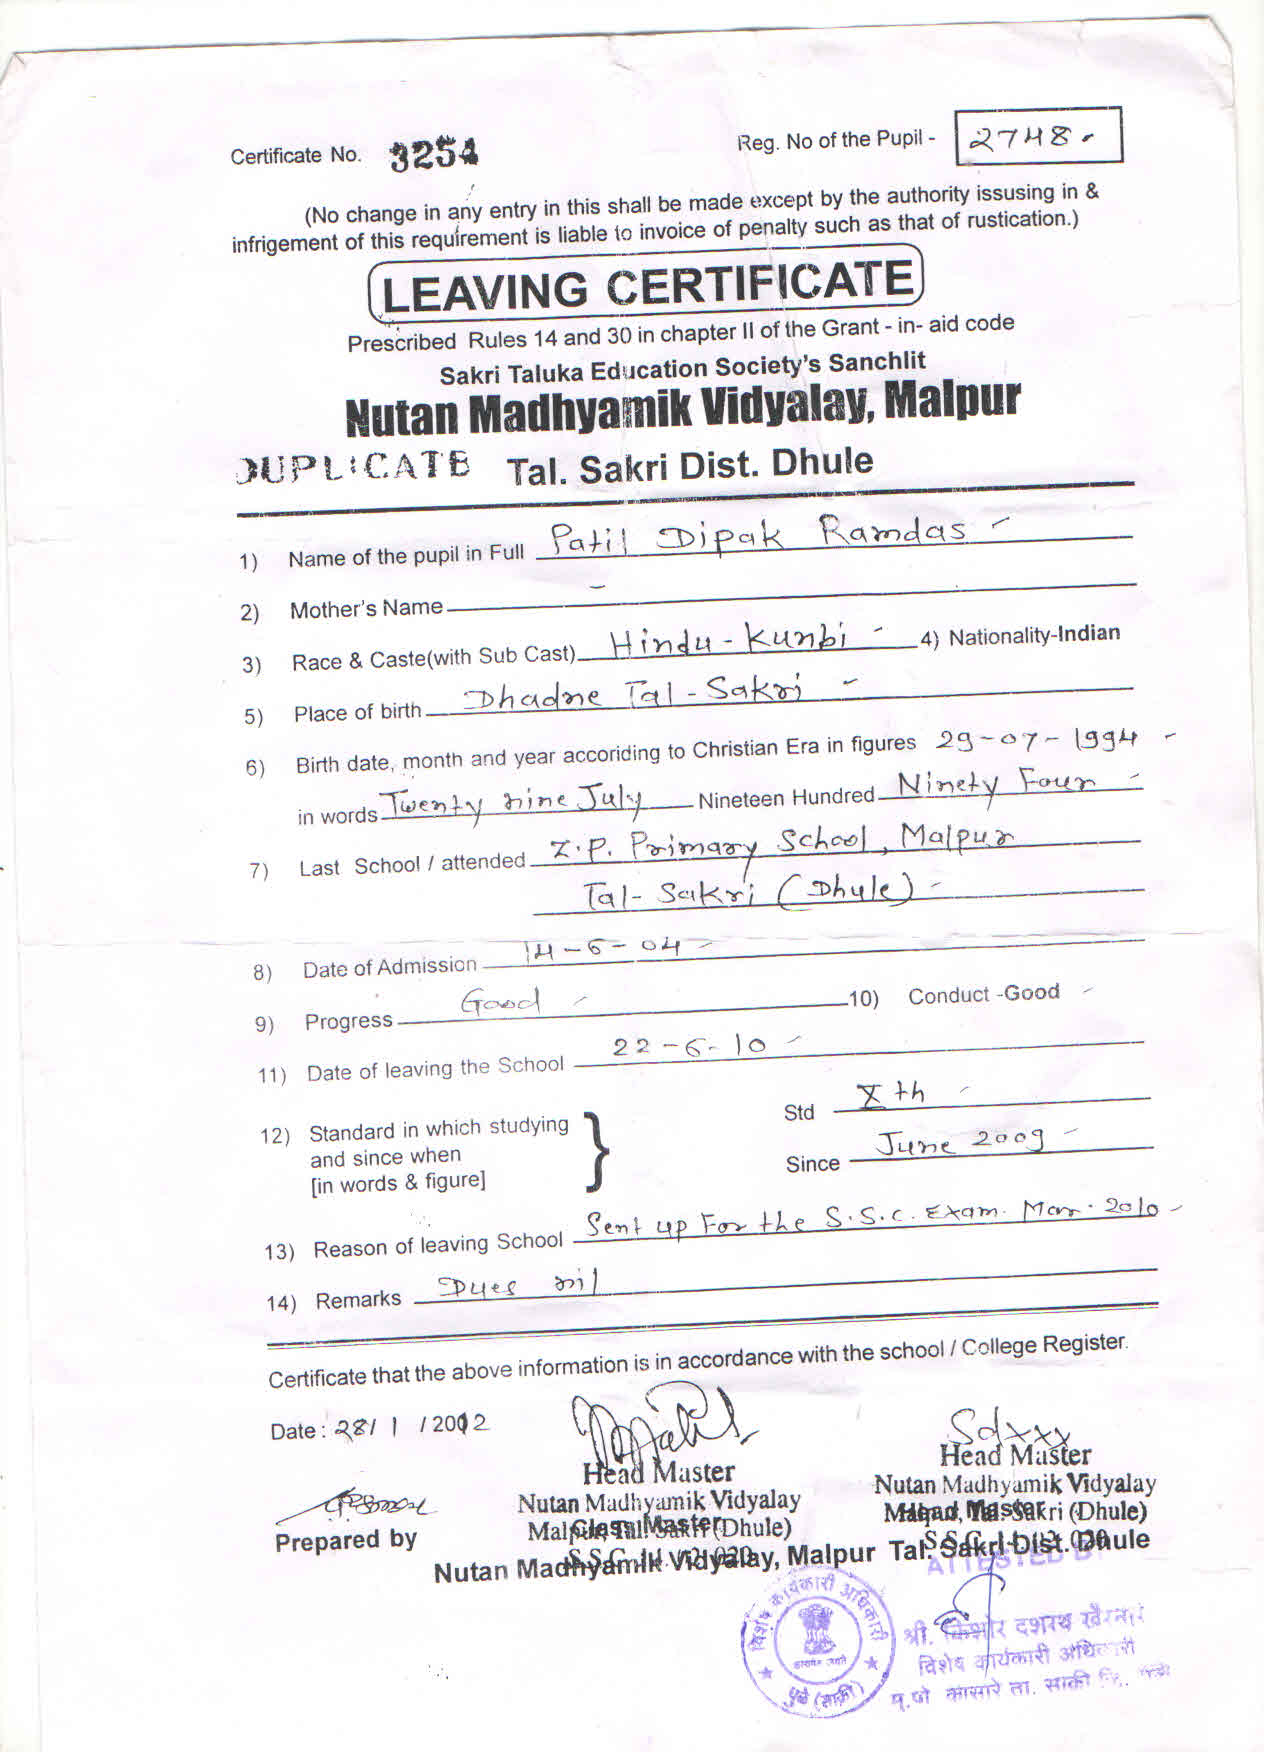 Certificate No. 3254
Reg. No of the Pupil - 2748
(No change in any entry in this shall be made except by the authority issusing in &
infrigement of this requirement is liable to invoice of penalty such as that of rustication.)
LEAVING CERTIFICATE
Prescribed Rules 14 and 30 in chapter II of the Grant - in- aid code
Sakri Taluka Education Society's Sanchlit
Nutan Madhyamik Vidyalay, Malpur
DUPLICATE Tal. Sakri Dist. Dhule
1) Name of the pupil in Full Patil Dipak Ramdas -
2) Mother's Name -
3) Race & Caste(with Sub Cast) Hindu - Kunbi - 4) Nationality-Indian
5) Place of birth Dhadne Tal - Sakri -
6) Birth date, month and year accoriding to Christian Era in figures 29-07-1994 -
in words Twenty nine July Nineteen Hundred Ninety Four -
7) Last School / attended Z.P. Primary School, Malpur
Tal- Sakri (Dhule) -
8) Date of Admission 14-6-04 -
9) Progress Good - 10) Conduct -Good -
11) Date of leaving the School 22-6-10 -
12) Standard in which studying
and since when
[in words & figure]
Std Xth -
Since June 2009 -
13) Reason of leaving School Sent up For the S.S.C. Exam. Mar. 2010 -
14) Remarks Dues nil
Certificate that the above information is in accordance with the school / College Register.
Date : 28/1/2012
Sdxxx
Head Master
Head Master
Nutan Madhyamik Vidyalay
Nutan Madhyamik Vidyalay
Prepared by
Malpur, Tal. Sakri (Dhule)
Class Master
Malpur, Tal. Sakri (Dhule)
Head Master
Nutan Madhyamik Vidyalay, Malpur Tal. Sakri Dist. Dhule
ATTESTED BY
विशेष कार्यकारी अधिकारी
धुळे (साक्री)
श्री. किशोर दशरथ खैरनार
विशेष कार्यकारी अधिकारी
कासारे ता. साक्री